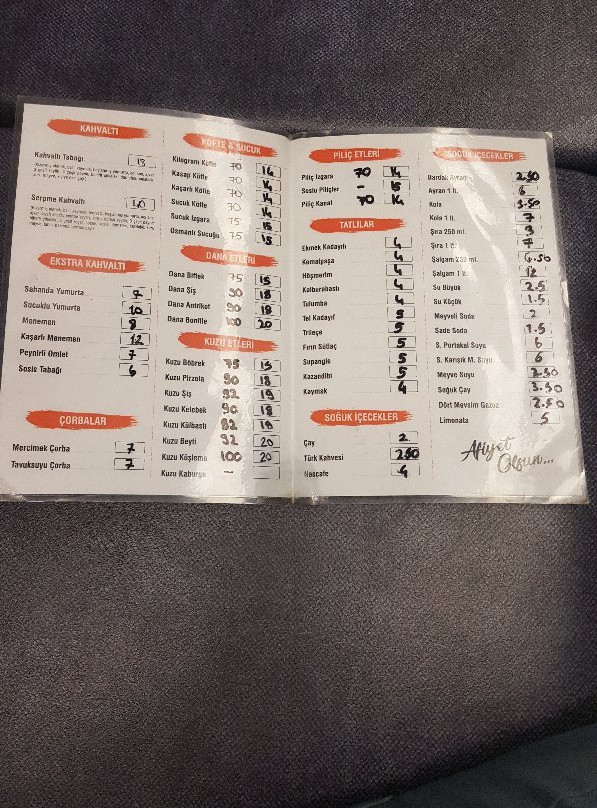 KAHVALTI
Kahvaltı Tabağı
Serpme Kahvaltı 40
EKSTRA KAHVALTI
Sahanda Yumurta 7
Sucuklu Yumurta 10
Menemen 8
Kaşarlı Menemen 12
Peynirli Omlet 7
Sosis Tabağı 6
ÇORBALAR
Mercimek Çorba 7
Tavuksuyu Çorba 7
KÖFTE & SUCUK
Kilogram Köfte 70 14
Kasap Köfte 70 14
Kaşarlı Köfte 70 14
Sucuk Köfte 70 14
Sucuk Izgara 75 15
Osmanlı Sucuğu 75 15
DANA ETLERİ
Dana Biftek 75 15
Dana Şiş 90 18
Dana Antrikot 90 18
Dana Bonfile 100 20
KUZU ETLERİ
Kuzu Böbrek 75 15
Kuzu Pirzola 90 18
Kuzu Şiş 92 19
Kuzu Kelebek 90 18
Kuzu Külbastı 92 19
Kuzu Beyti 92 20
Kuzu Küşleme 100 20
Kuzu Kaburga -
PİLİÇ ETLERİ
Piliç Izgara 70 14
Soslu Piliçler - 15
Piliç Kanat 70 14
TATLILAR
Ekmek Kadayıfı 4
Kemalpaşa 4
Höşmerim 4
Kalburabastı 4
Tulumba 4
Tel Kadayıf 5
Trileçe 5
Fırın Sütlaç 5
Supangle 5
Kazandibi 5
Kaymak 4
SOĞUK İÇECEKLER
Çay 2
Türk Kahvesi 2.50
Nescafe 4
SOĞUK İÇECEKLER
Bardak Ayran 2.50
Ayran 1 lt. 6
Kola 3.50
Kola 1 lt. 7
Şıra 250 ml. 3
Şıra 1 lt. 7
Şalgam 250 ml. 4.50
Şalgam 1 lt. 12
Su Büyük 2.5
Su Küçük 1.5
Meyveli Soda 2
Sade Soda 1.5
S. Portakal Suyu 6
S. Karışık M. Suyu 6
Meyve Suyu 3.50
Soğuk Çay 3.50
Dört Mevsim Gazoz 2.50
Limonata 5
Afiyet
Olsun...